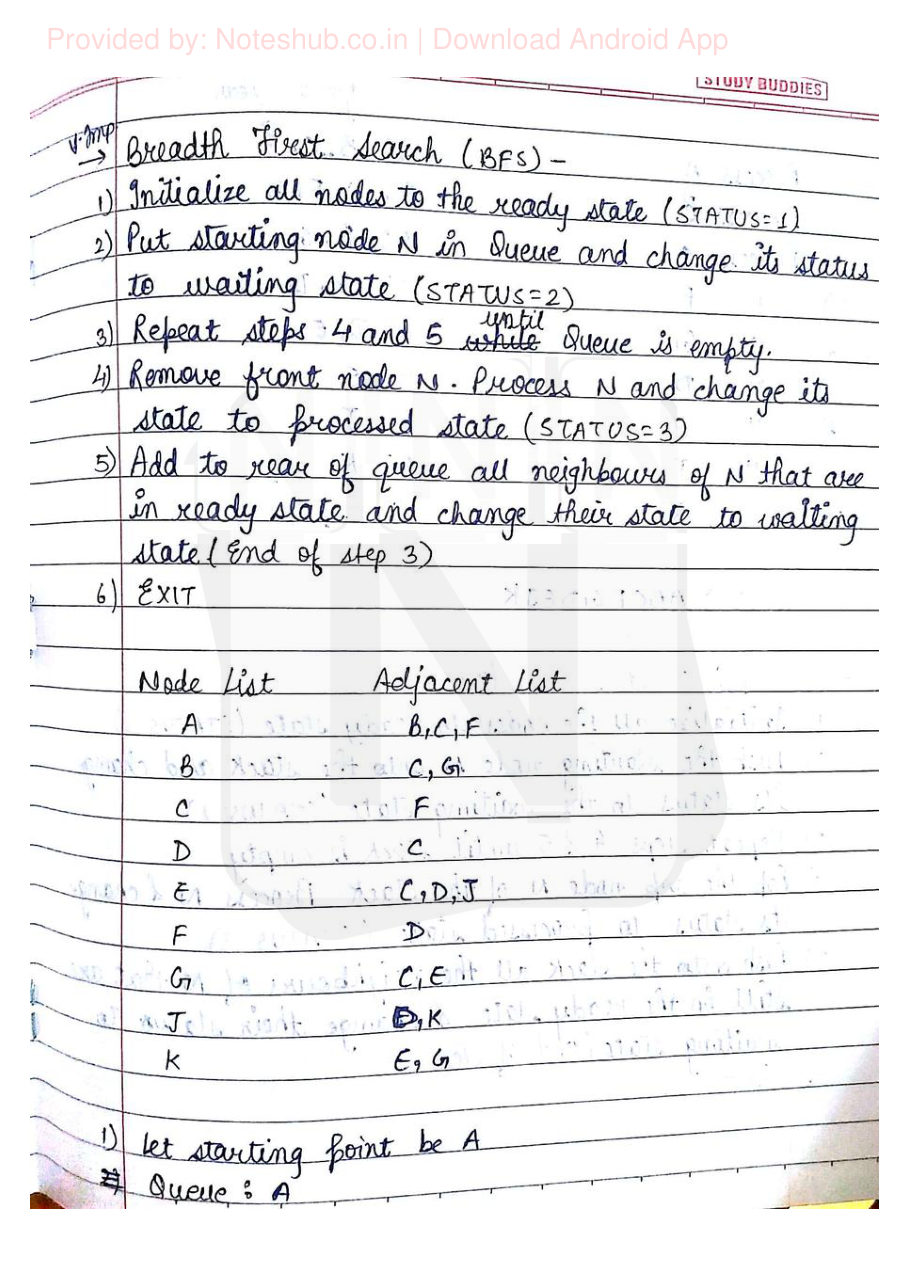 Provided by: Noteshub.co.in | Download Android App
STUDY BUDDIES
V.Imp
→ Breadth First Search (BFS) -
1) Initialize all nodes to the ready state (STATUS=1)
2) Put starting node N in Queue and change its status
to waiting state (STATUS=2)
until
3) Repeat steps 4 and 5 while Queue is empty.
4) Remove front node N. Process N and change its
state to processed state (STATUS=3)
5) Add to rear of queue all neighbours of N that are
in ready state and change their state to waiting
state (End of step 3)
6) EXIT
Node List Adjacent List
A B, C, F
B C, G
C F
D C
E C, D, J
F D
G C, E
J D, K
K E, G
1) let starting point be A
Queue : A